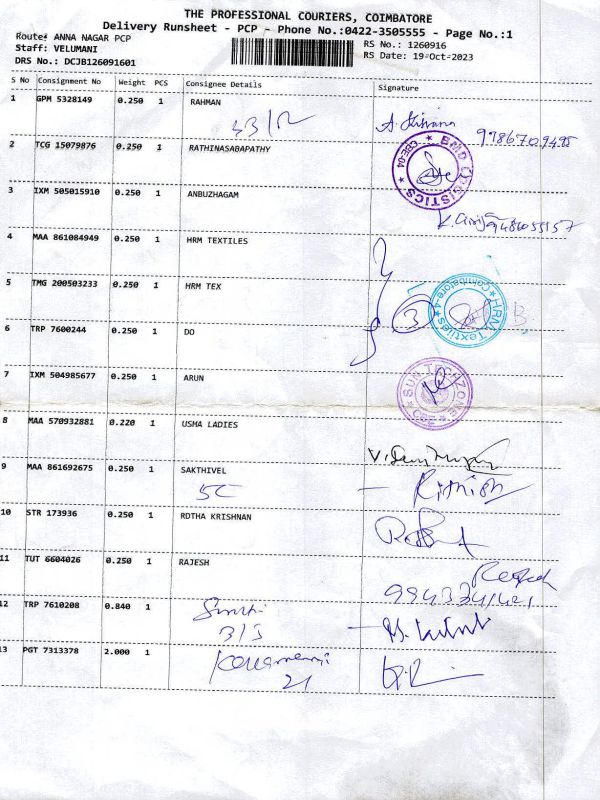 THE PROFESSIONAL COURIERS, COIMBATORE
Delivery Runsheet - PCP - Phone No.:0422-3505555 - Page No.:1
Route: ANNA NAGAR PCP
RS No.: 1260916
Staff: VELUMANI
RS Date: 19-Oct-2023
DRS No.: DCJB126091601
S No Consignment No Weight PCS Consignee Details Signature
1 GPM 5328149 0.250 1 RAHMAN
43/12
2 TCG 15079876 0.250 1 RATHINASABAPATHY
BMD LOGISTICS
CBE-04
3 IXM 505015910 0.250 1 ANBUZHAGAM
4 MAA 861084949 0.250 1 HRM TEXTILES
5 TMG 200503233 0.250 1 HRM TEX
3
HRM Textiles
Coimbatore-4
B
6 TRP 7600244 0.250 1 DO
7 IXM 504985677 0.250 1 ARUN
SUN TECHZONE
8 MAA 570932881 0.220 1 USMA LADIES
9 MAA 861692675 0.250 1 SAKTHIVEL
5C
Rithish
10 STR 173936 0.250 1 RDTHA KRISHNAN
11 TUT 6604026 0.250 1 RAJESH
12 TRP 7610208 0.840 1
3/3
13 PGT 7313378 2.000 1
21